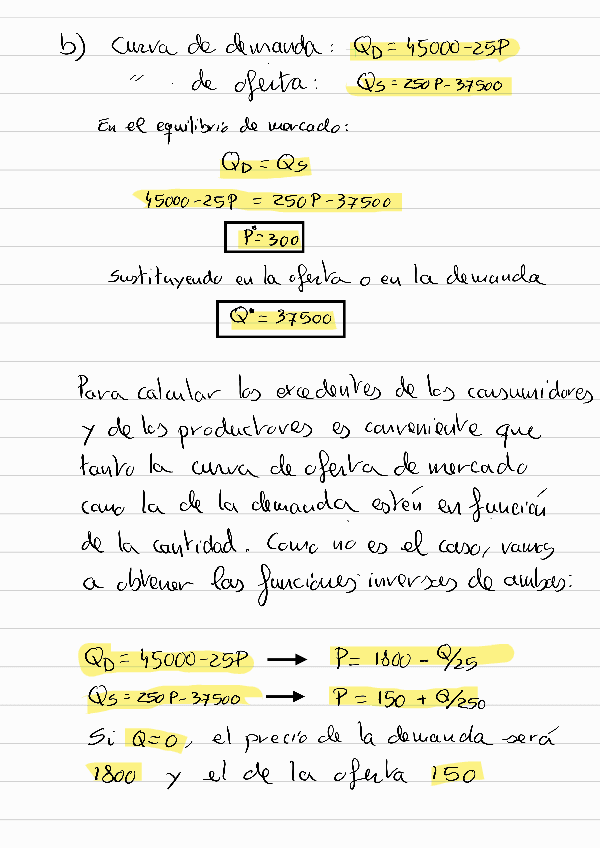 b) Curva de demanda: QD = 45000-25P
" de oferta: QS = 250P-37500
En el equilibrio de mercado:
QD = QS
45000-25P = 250P-37500
P*=300
Sustituyendo en la oferta o en la demanda
Q* = 37500
Para calcular los excedentes de los consumidores
y de los productores es conveniente que
tanto la curva de oferta de mercado
como la de la demanda estén en función
de la cantidad. Como no es el caso, vamos
a obtener las funciones inversas de ambas:
QD = 45000-25P → P = 1800 - Q/25
QS = 250P-37500 → P = 150 + Q/250
Si Q=0, el precio de la demanda será
1800 y el de la oferta 150